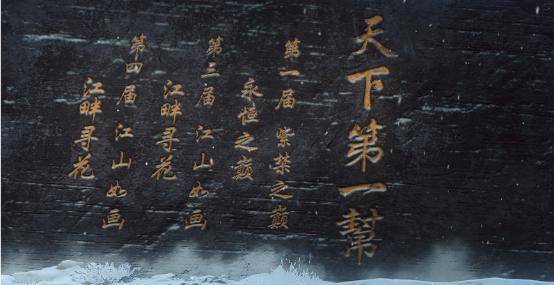 天下第一幫
第一届 紫禁之巅
永恒之巅
第三届 江山如画
江畔寻花
第四届 江山如画
江畔寻花